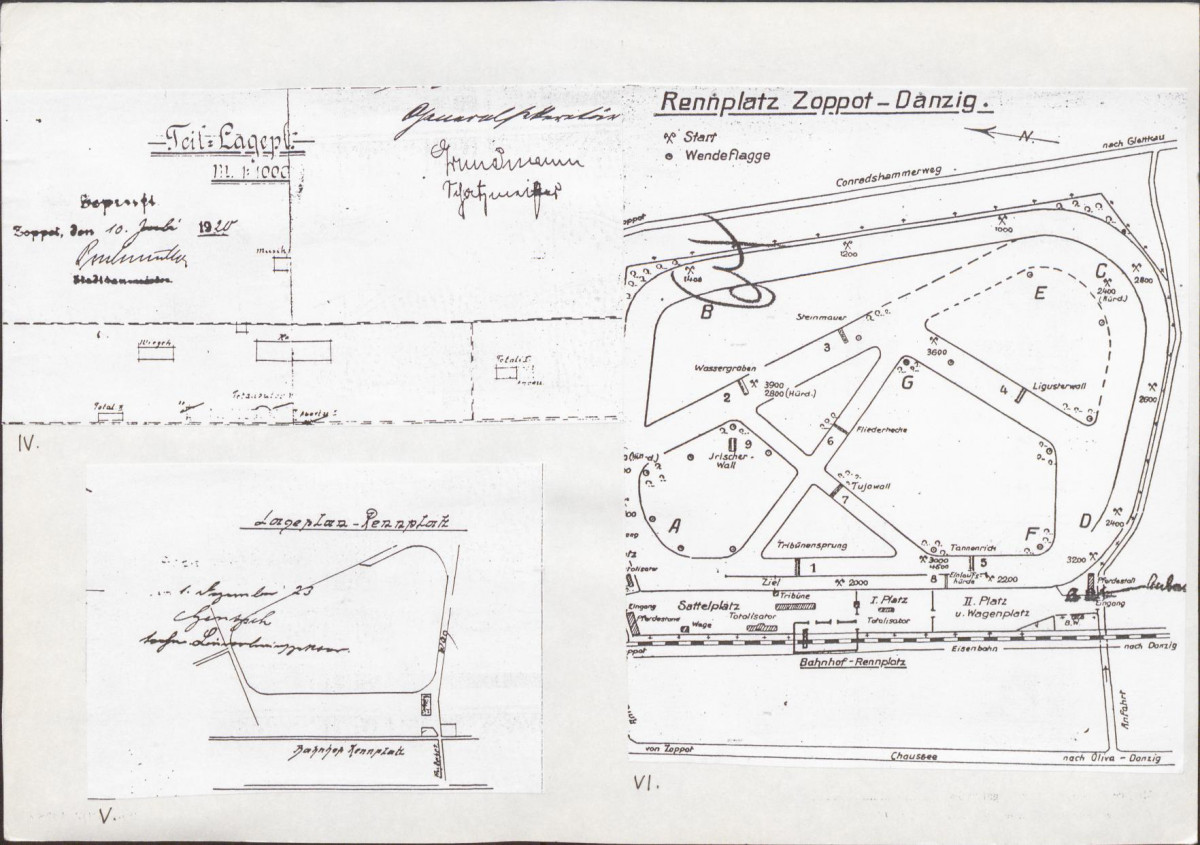 Teil-Lagepl.
M. 1:1000
Geprüft
Zoppot, den 10. Juli 1920
Stadtbaumeister
Generalsekretär
Grundmann
Schatzmeister
Musik
Total II
IV.
Lageplan-Rennplatz
1. Dezember 23
Bahnhof Rennplatz
V.
Rennplatz Zoppot-Danzig.
Start
Wendeflagge
N.
nach Glettkau
Conradshammerweg
1000
1200
1400
B
C
2400
(Hürd.)
2800
E
Steinmauer
3
3600
Wassergraben
2
3900
2800 (Hürd.)
G
4
Ligusterwall
2600
Fliederhecke
6
9
Jrischer-
Wall
Tujawall
7
A
F
D
2400
Tribünensprung
Tannenrick
3000
4600
5
3200
1
Ziel
2000
8
Einlaufs-
hürde
2200
Pferdestall
Tribüne
Eingang
Sattelplatz
I. Platz
II. Platz
u. Wagenplatz
Eingang
Pferdestand
Wage
Totalisator
Totalisator
B.W.
Eisenbahn
nach Danzig
Bahnhof-Rennplatz
Anfahrt
von Zoppot
Chaussee
nach Oliva-Danzig
VI.